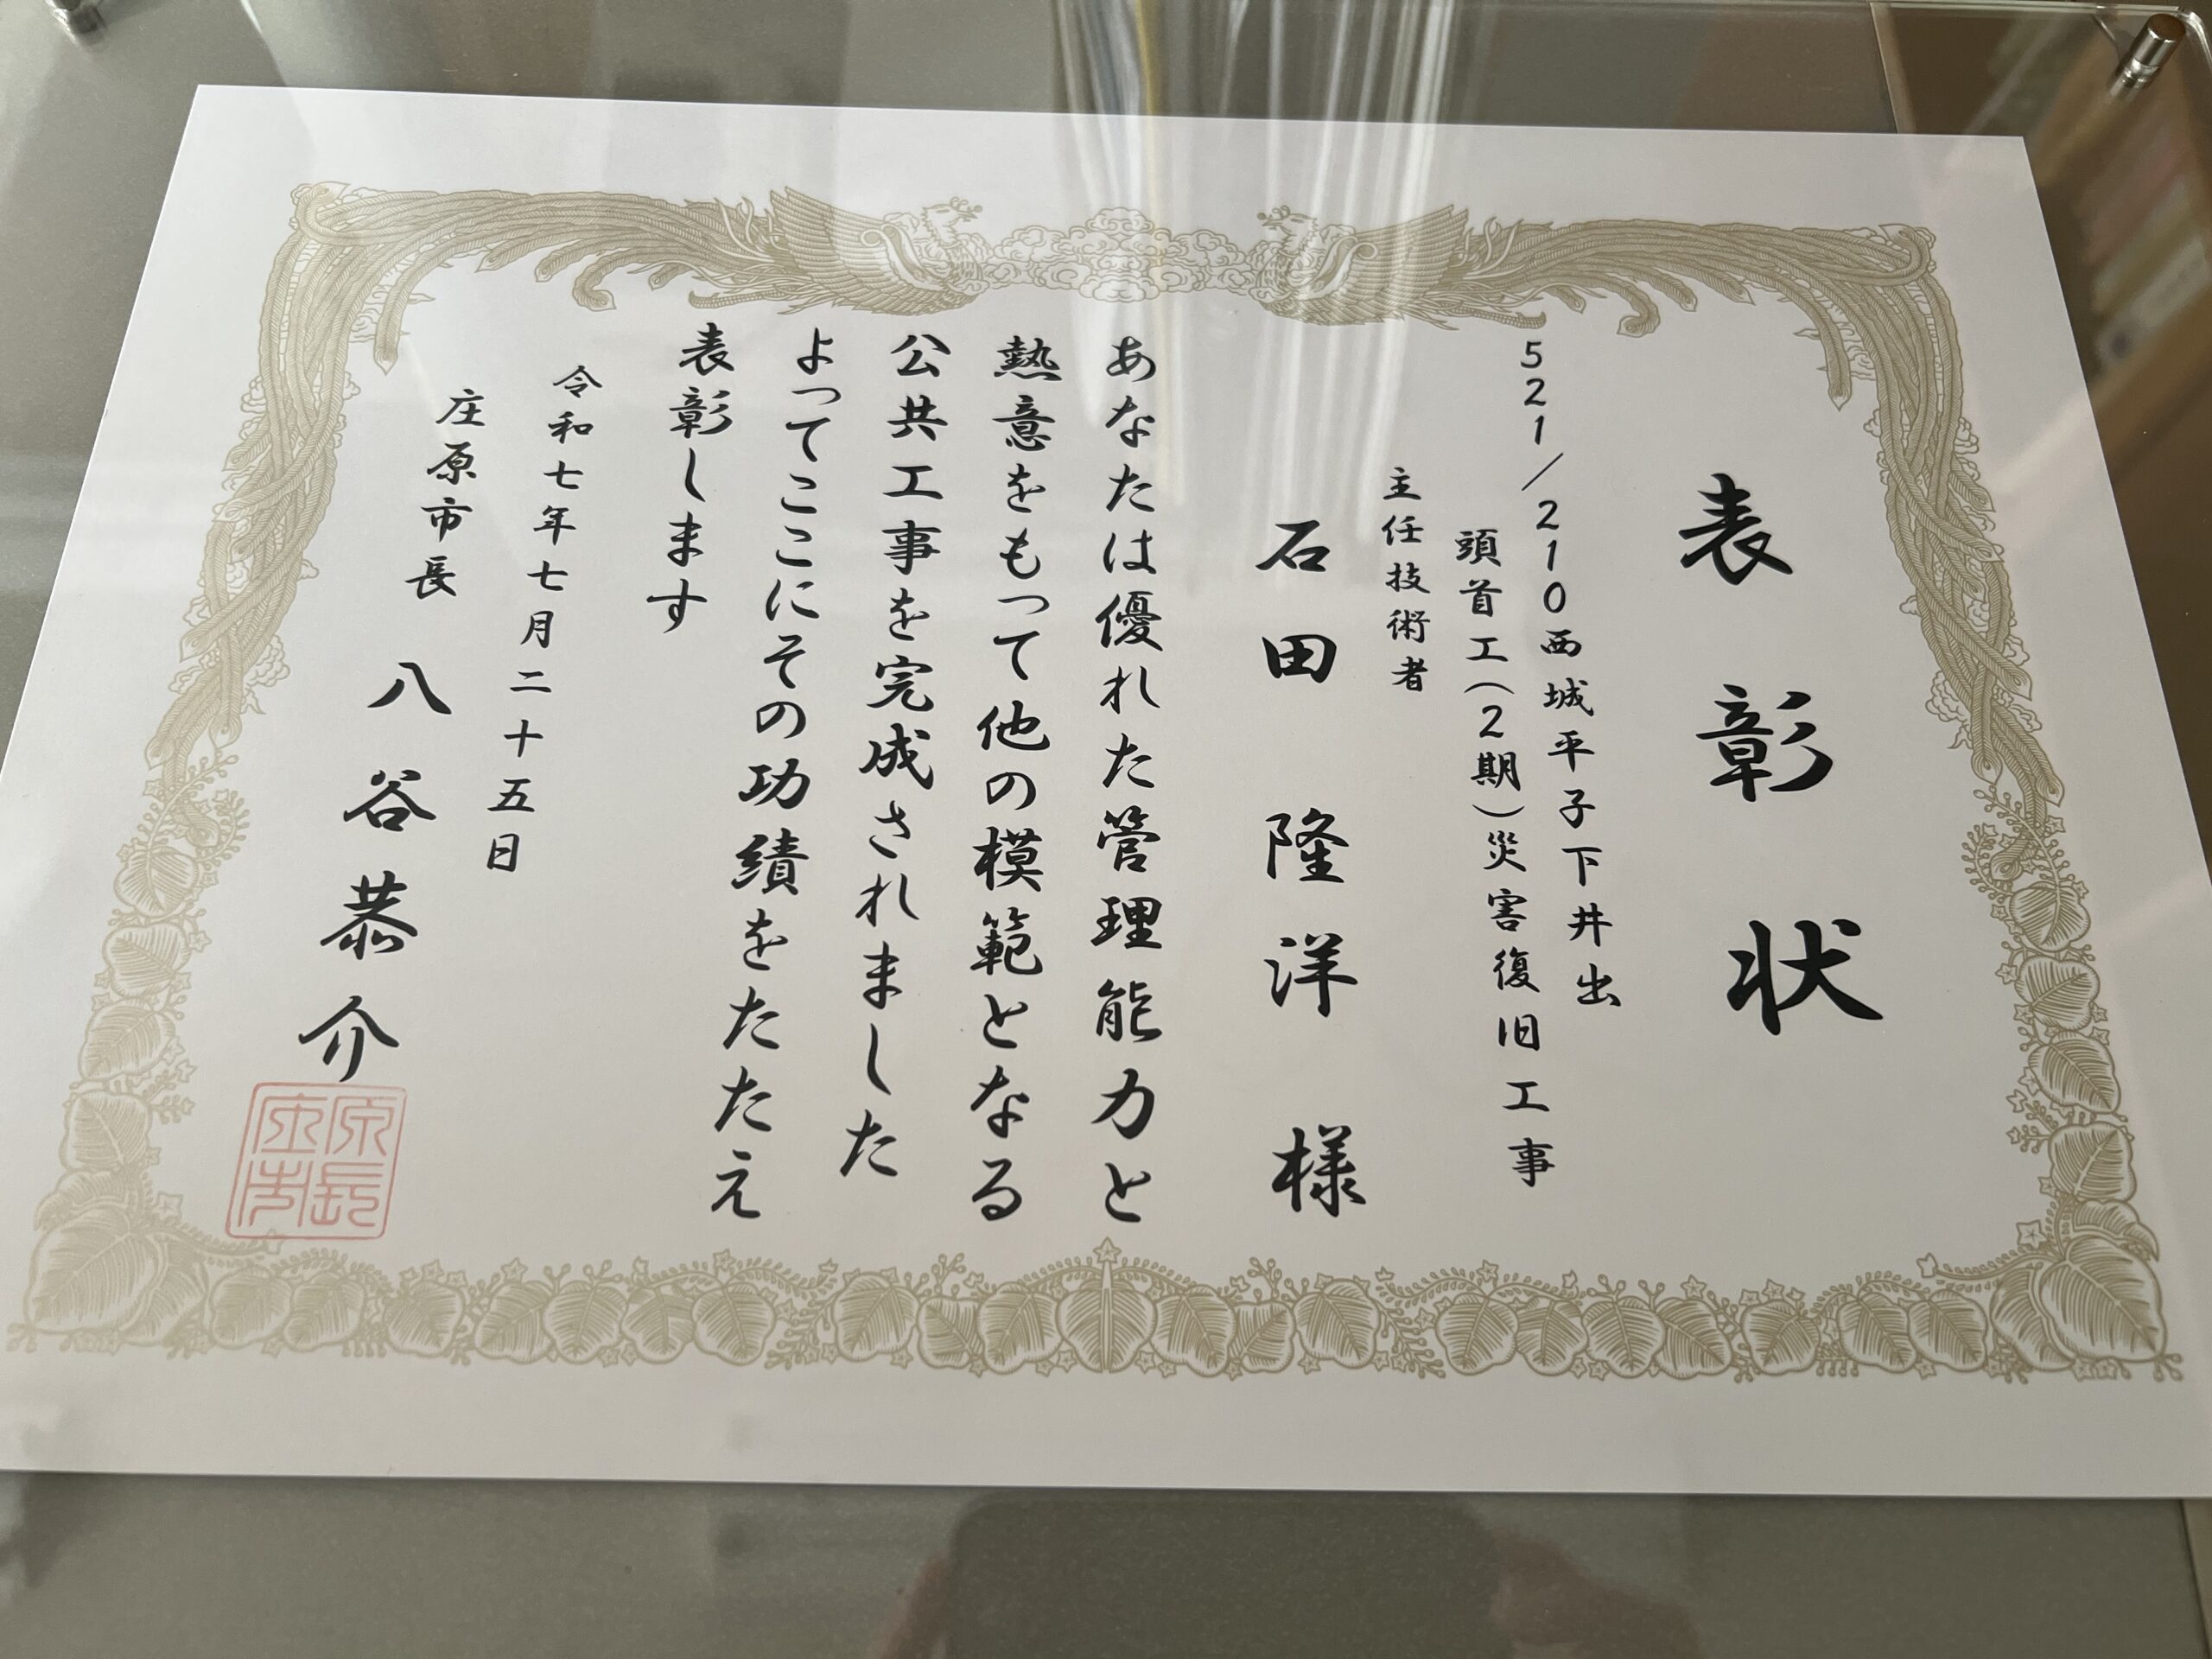 表彰状
521/210西城平子下井出
頭首工(2期)災害復旧工事
主任技術者
石田 隆洋 様
あなたは優れた管理能力と
熱意をもって他の模範となる
公共工事を完成されました
よってここにその功績をたたえ
表彰します
令和七年七月二十五日
庄原市長 八谷恭介
庄原市長